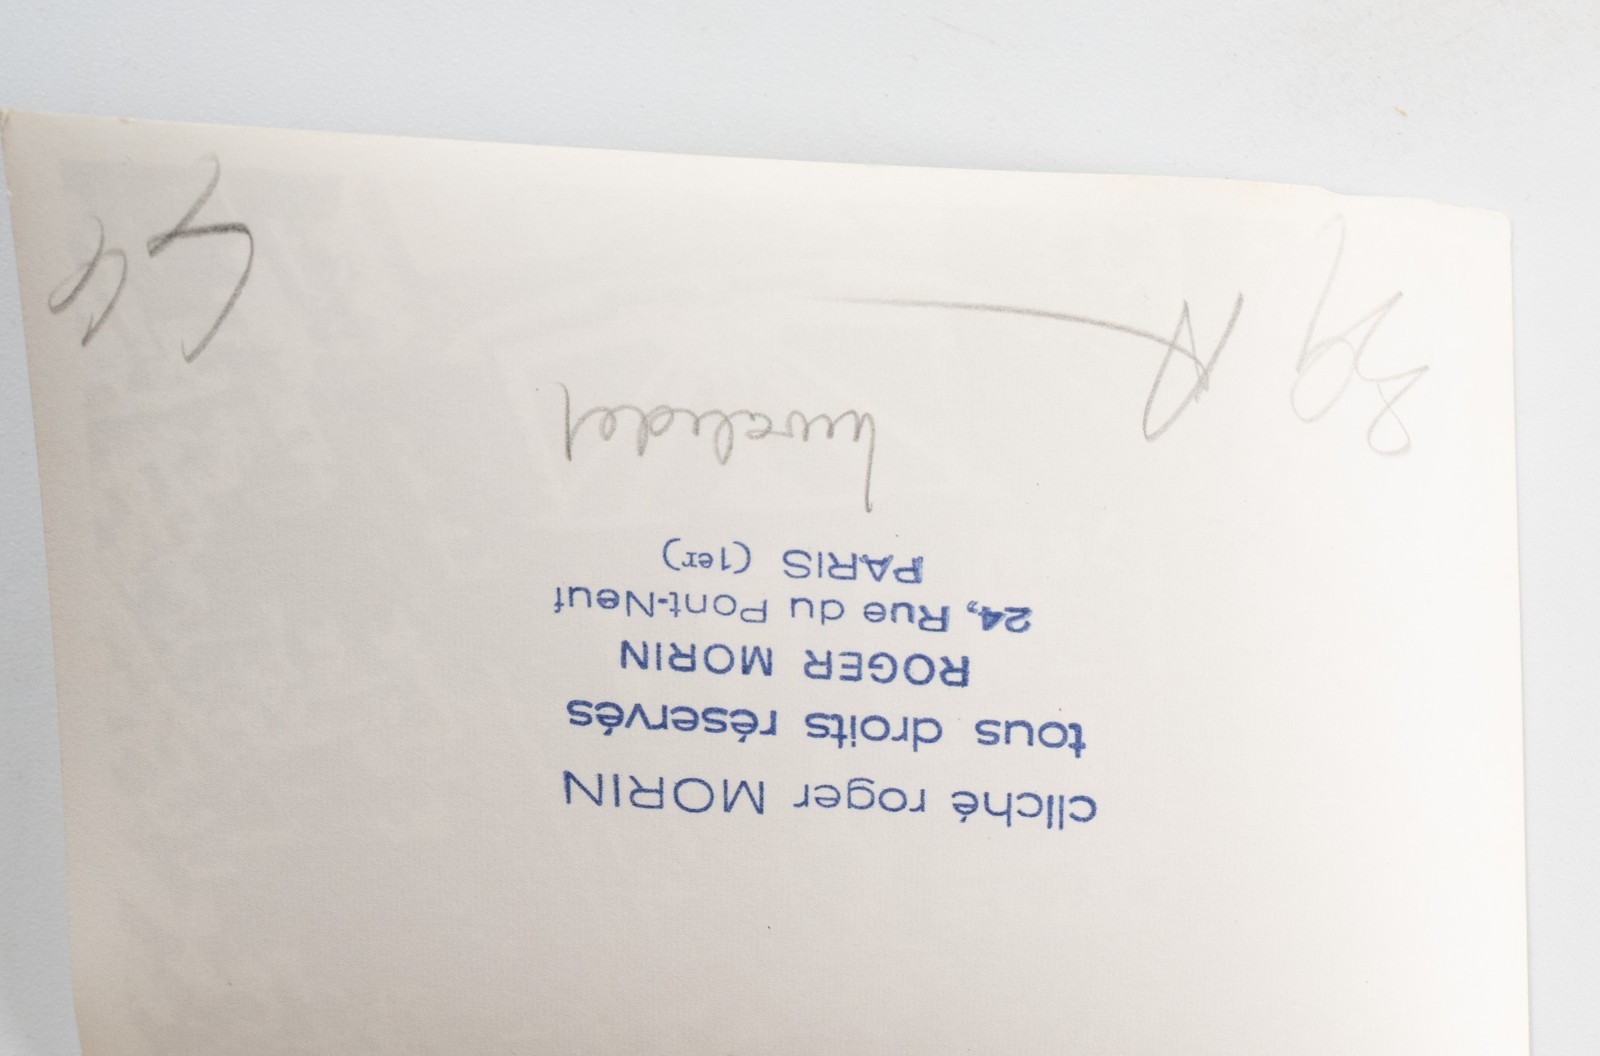 cliché roger MORIN
tous droits réservés
ROGER MORIN
24, Rue du Pont-Neuf
PARIS (1er)
Invalides